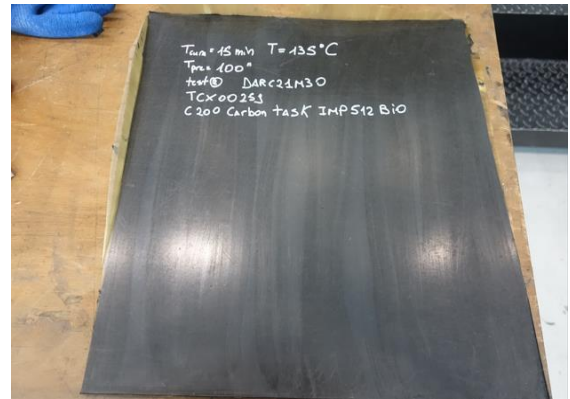 Tcure = 15 min T = 135°C
Tpre = 100"
test① DARC21M30
TCX00253
C200 Carbon TASK IMP512 BiO